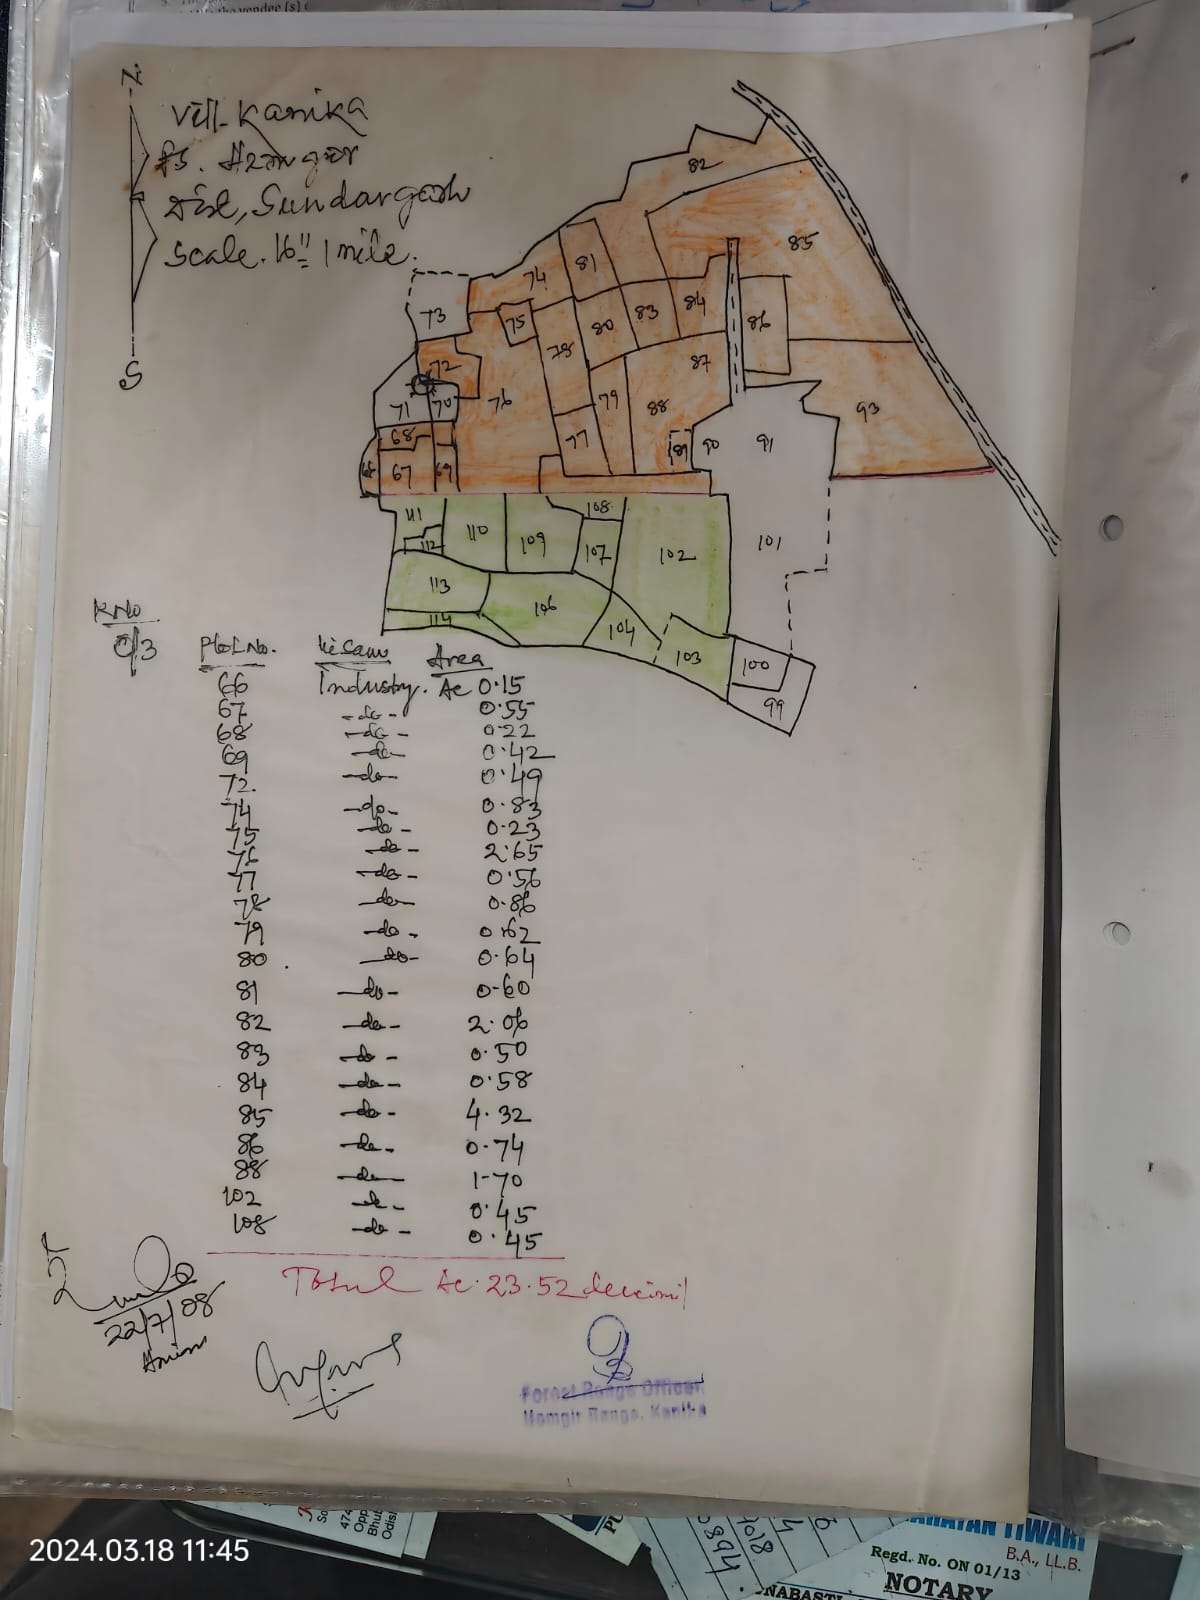 the vendee (s)
N
Vill- Kanika
PS. Hemgir
Dist, Sundargarh
Scale. 16" 1 mile.
S
82
85
81
74
73
75
80
83
84
86
78
72
87
76
71
70
79
88
93
68
77
89
90
91
66
67
69
111
110
108
109
112
107
102
101
113
106
114
104
103
100
99
K No
93
Plot No. Kisam Area
66 Industry. Ac 0.15
67 -do- 0.55
68 -do- 0.22
69 -do- 0.42
72. -do- 0.49
74 -do- 0.83
75 -do- 0.23
76 -do- 2.65
77 -do- 0.56
78 -do- 0.86
79 -do- 0.62
80 -do- 0.64
81 -do- 0.60
82 -do- 2.06
83 -do- 0.50
84 -do- 0.58
85 -do- 4.32
86 -do- 0.74
88 -do- 1.70
102 -do- 0.45
108 -do- 0.45
Total Ac. 23.52 decimil
22/7/08
Amin
Forest Range Officer
Hemgir Range, Kanika
2024.03.18 11:45
474
Opp
Bhub
Odis
TIWARI
B.A., LL.B.
Regd. No. ON 01/13
NOTARY